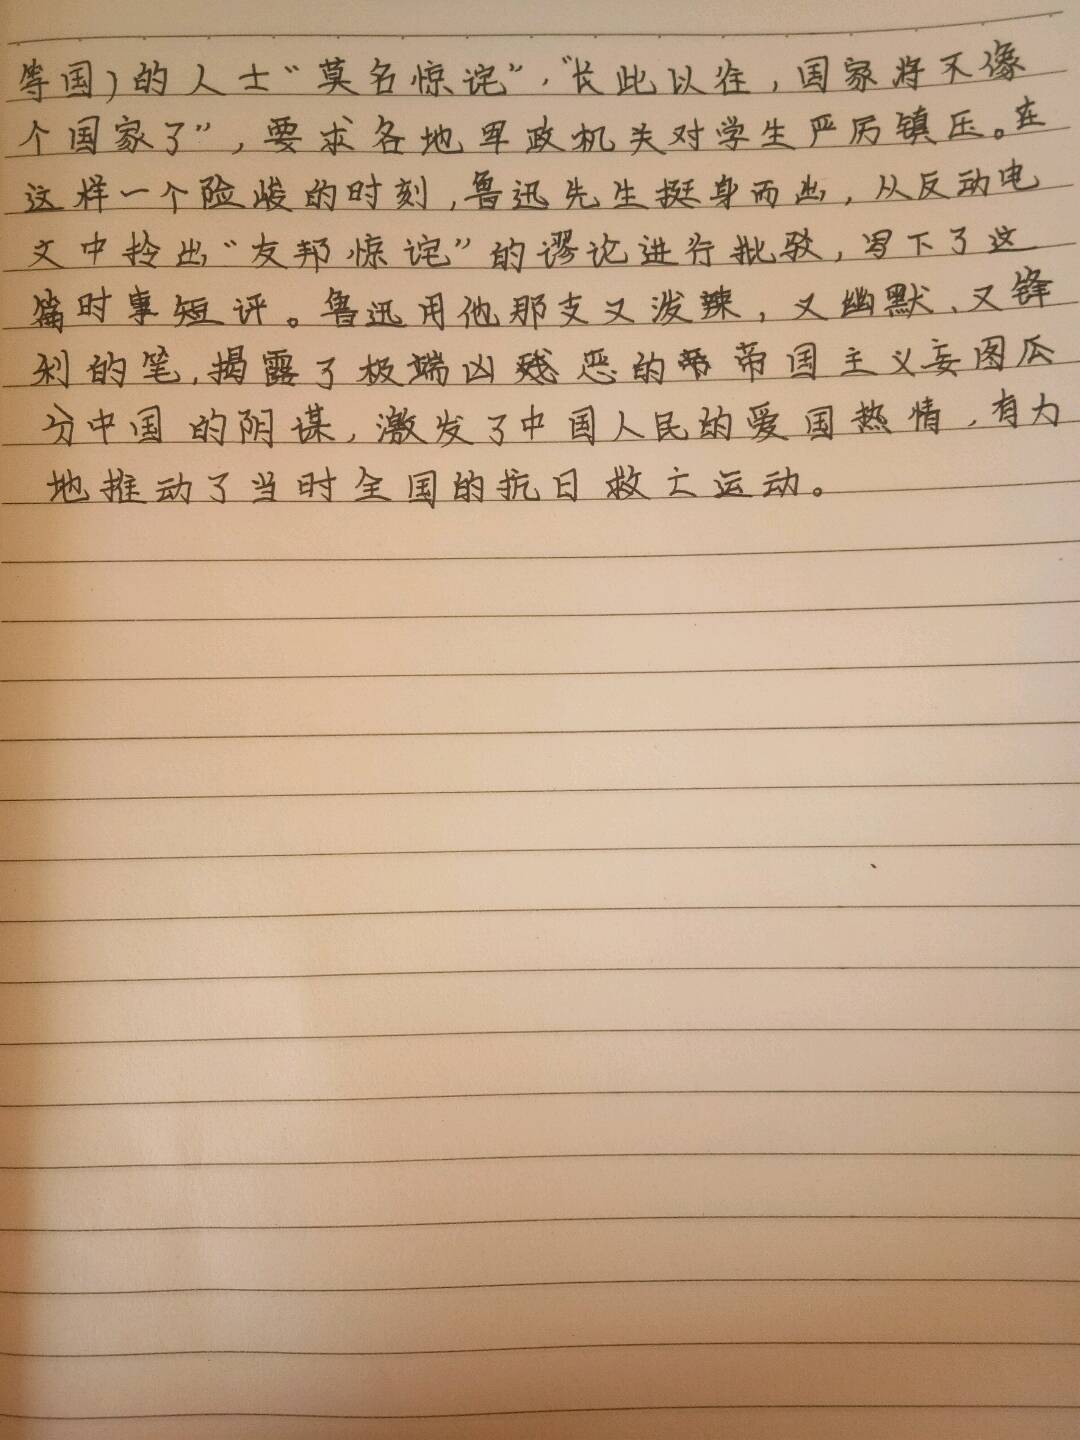 等国）的人士“莫名惊诧”，“长此以往，国家将不像
个国家了”，要求各地军政机关对学生严厉镇压。在
这样一个险峻的时刻，鲁迅先生挺身而出，从反动电
文中拎出“友邦惊诧”的谬论进行批驳，写下了这
篇时事短评。鲁迅用他那支又泼辣，又幽默、又锋
利的笔，揭露了极端凶残恶的帝国主义妄图瓜
分中国的阴谋，激发了中国人民的爱国热情，有力
地推动了当时全国的抗日救亡运动。